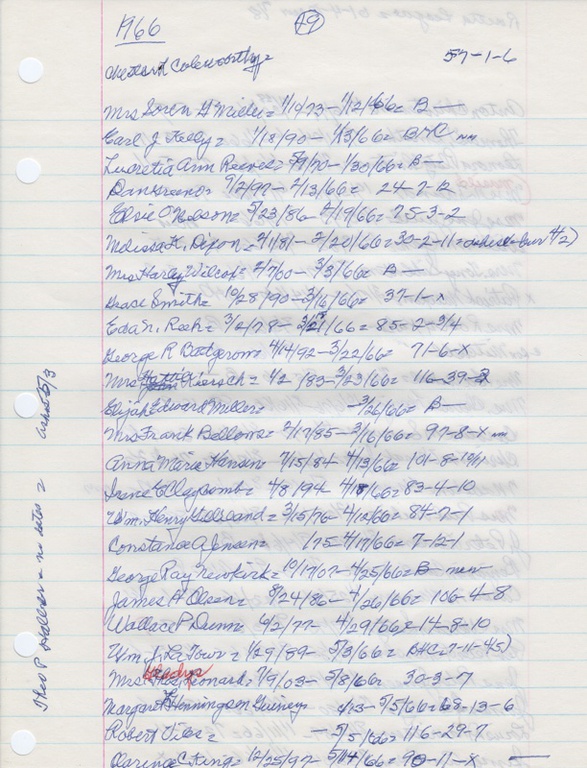 1966 49
57-1-6
Mrs Soren H Miller = 1/14/73 - 1/12/66 = B —
Carl J. Kelly = 1/18/90 - 1/13/66 = B+C nm
Lucretia Ann Reeves = 70 - 1/30/66 = B —
9/2/97 - 2/13/66 = 24-7-12
Elsie O. = 5/23/86 - 2/19/66 = 75-3-2
Melissa K. Dixon = 2/1/81 - 2/20/66 = 30-2-11 = #2)
Mrs Harley Wilcox = 2/7/00 - 3/3/66 = B —
Grace Smith = 10/28/90 - 3/16/66 = 37-1-x
Eda N. = 3/2/78 - 3/21/66 = 85-2-3/4
George R = 4/14/92 - 3/22/66 = 71-6-x
Mrs Hattie Kiersch = 42 /83 - 3/23/66 = 116-39-2
Elijah Edward Miller = - 3/26/66 = B —
Mrs Frank = 2/17/85 - 3/16/66 = 97-8-x nm
Anna Marie Hansen = 7/15/84 4/13/66 = 101-8-
Irene C Claycomb = 4/8/94 4/18/66 = 83-4-10
Wm. Henry = 3/15/76 - 4/12/66 = 84-7-1
Constance A. Jensen = 175 - 4/17/66 = 7-12-1
George Ray Newkirk = 10/17/07 - 4/25/66 = B — new
James H Olsen = 8/24/86 - 4/26/66 = 106-4-8
Wallace P Dunn = 6/2/77 - 4/29/66 = 14-8-10
Wm. J. La Tour = 1/29/89 - 5/3/66 = B+C = 7-11-45)
Mrs Gladys Leonard = 7/9/03 - 5/8/66 = 30-3-7
Margaret Henningsen - 5/5/66 = 68-13-6
Robert = — 5/5/66 = 116-29-7
Clarence C. King = 10/25/97 - 5/14/66 = 90-11-x —
Theo P = no dates =